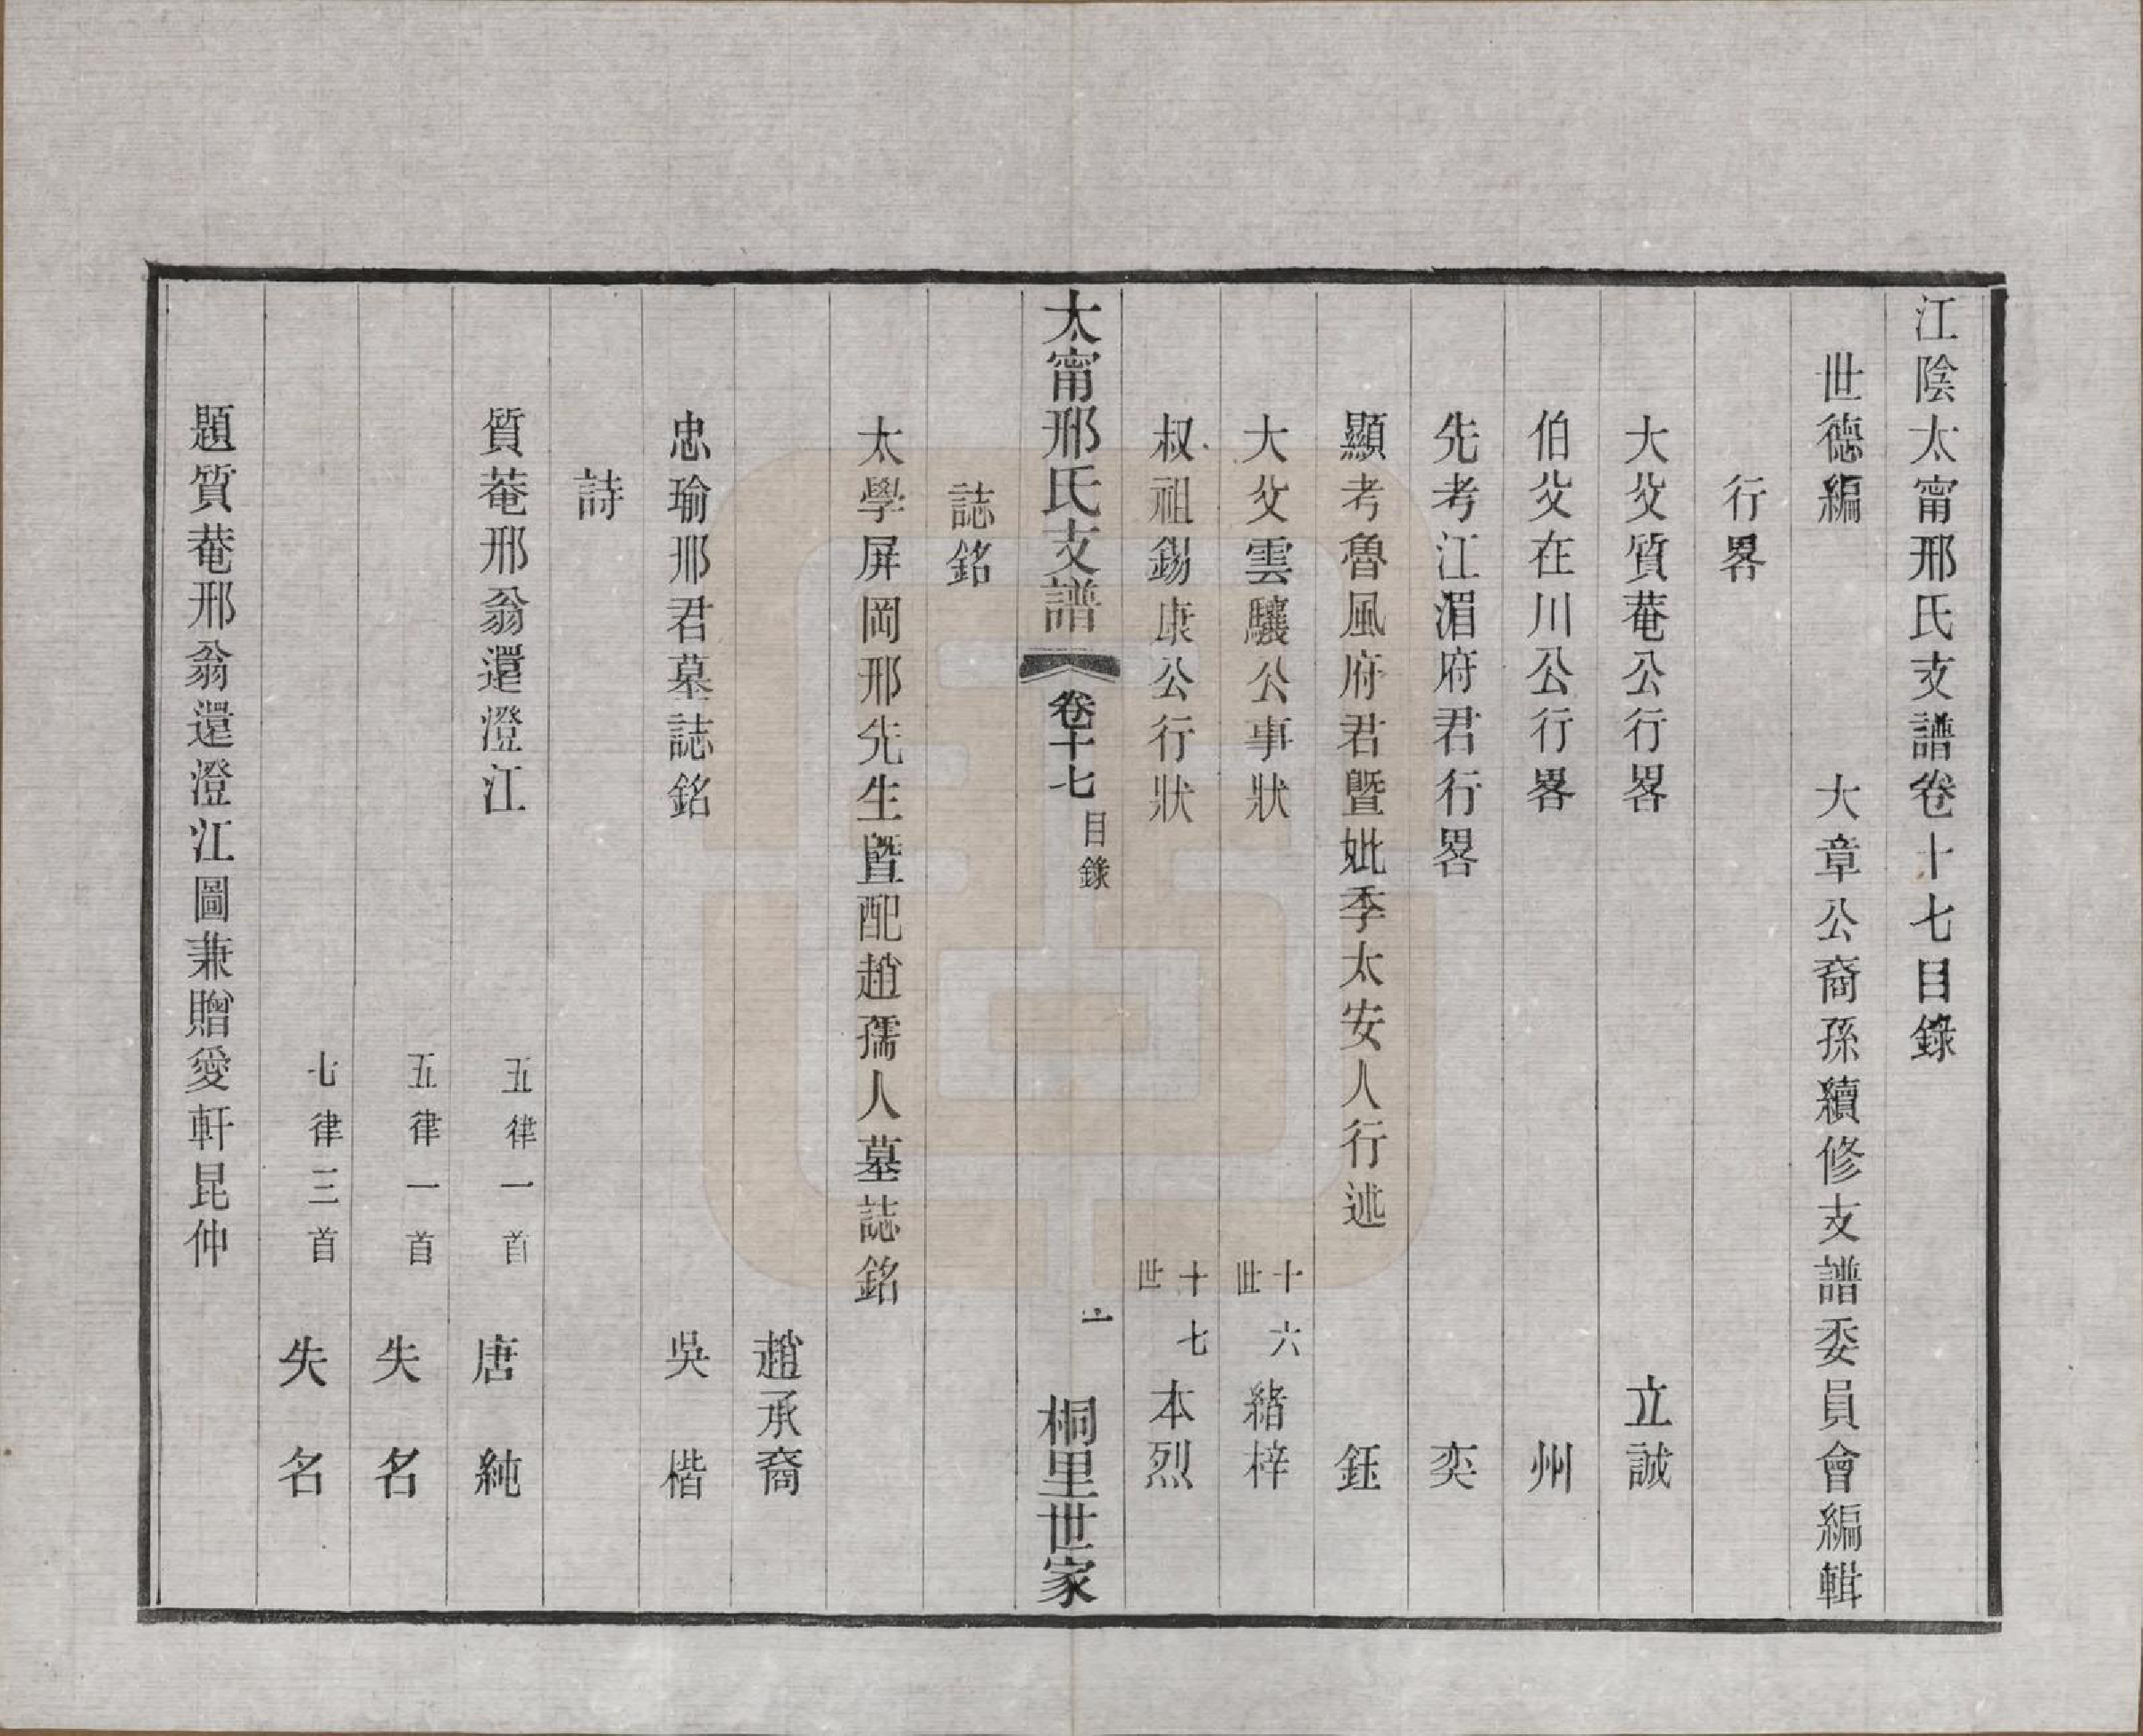 江陰太甯邢氏支譜卷十七目錄
世德編　大章公裔孫續修支譜委員會編輯
行畧
大父質菴公行畧　立誠
伯父在川公行畧　州
先考江湄府君行畧　奕
顯考魯風府君暨妣季太安人行述　鈺
大父雲驤公事狀　十六世　緒梓
叔祖錫康公行狀　十七世　本烈
太甯邢氏支譜　卷十七　目錄　一　桐里世家
誌銘
太學屏岡邢先生暨配趙孺人墓誌銘
趙承裔
忠瑜邢君墓誌銘　吳楷
詩
質菴邢翁還澄江　五律一首　唐純
五律一首　失名
七律三首　失名
題質菴邢翁還澄江圖兼贈愛軒昆仲